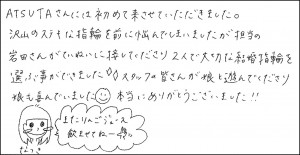 ATSUTAさんには初めて来させていただきました。
沢山のステキな指輪を前に悩んでしまいましたが担当の
岩田さんがていねいに接してくださり2人で大切な結婚指輪を
選ぶ事ができました♡♡スタッフの皆さんが娘と遊んでくださり
娘も喜んでいました☺本当にありがとうございました!!
またりんごジュース
飲ませてねー